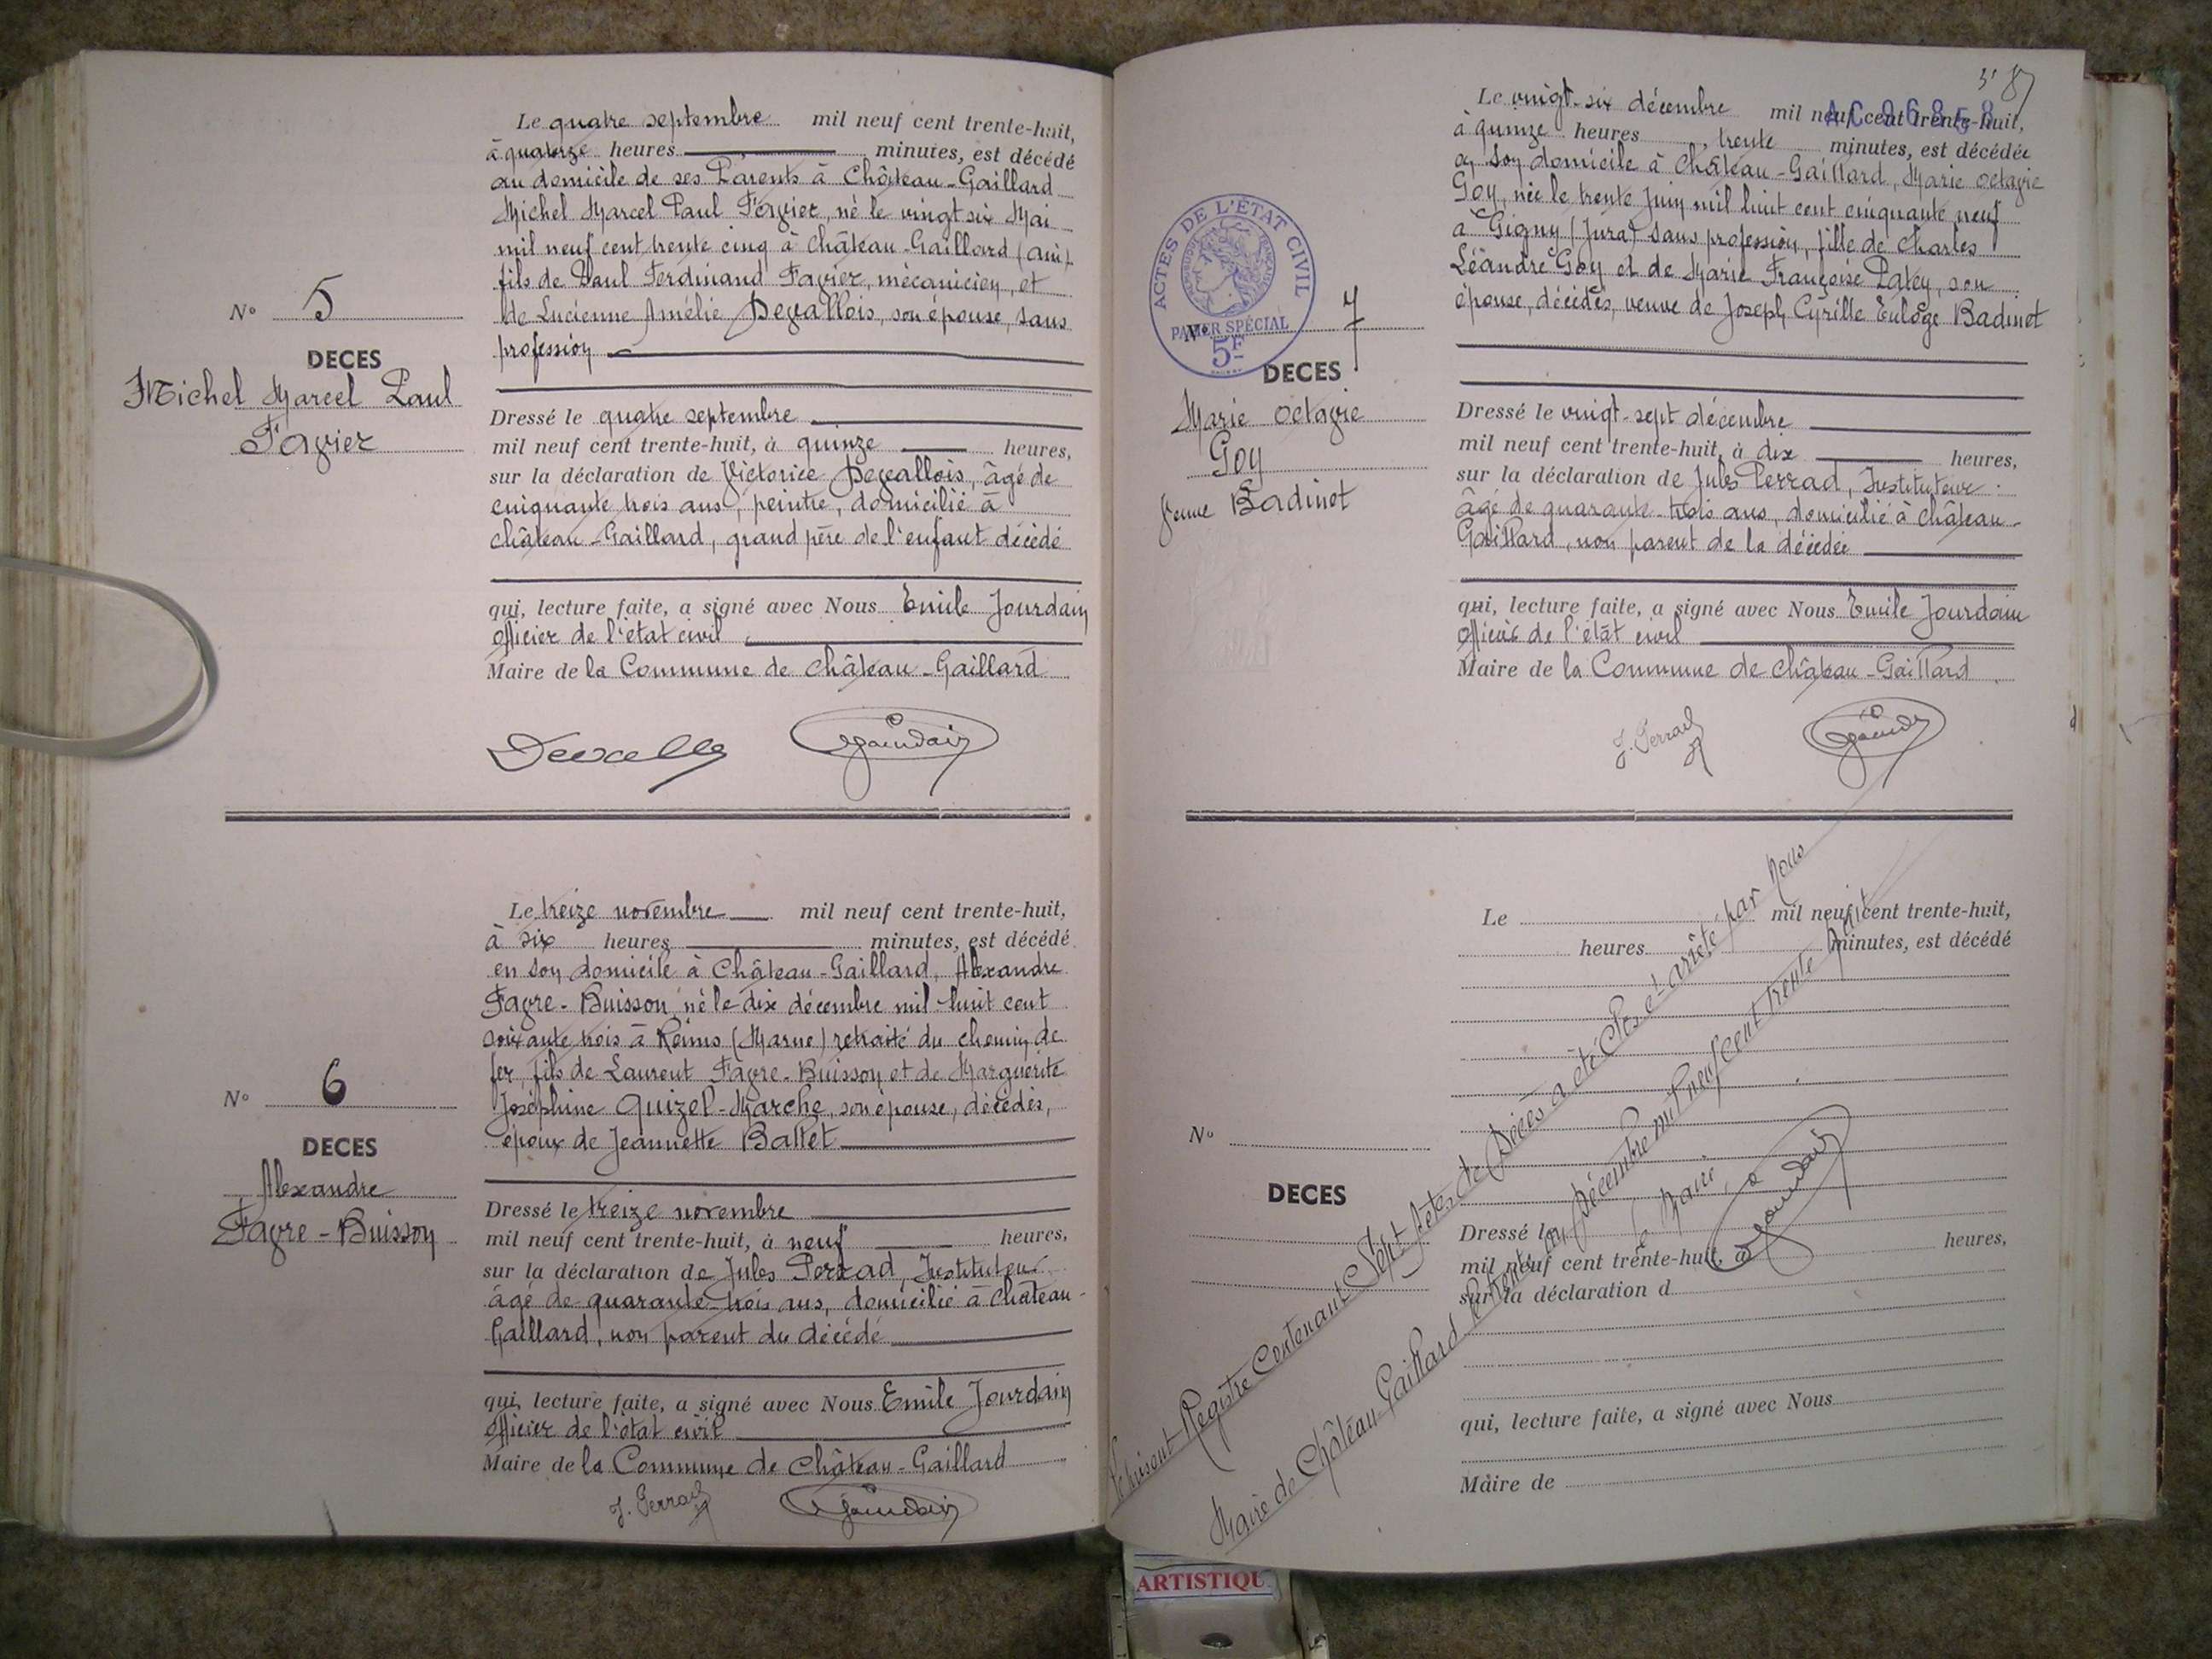 Le quatre septembre mil neuf cent trente-huit,
à quatorze heures minutes, est décédé
au domicile de ses Parents à Château-Gaillard
Michel Marcel Paul Favier, né le vingt six Mai
mil neuf cent trente cinq à Château-Gaillard (Ain)
fils de Paul Ferdinand Favier, mécanicien, et
de Lucienne Amélie Devallois, son épouse, sans
profession
N° 5
DECES
Michel Marcel Paul
Favier
Dressé le quatre septembre
mil neuf cent trente-huit, à quinze heures,
sur la déclaration de Victorice Devallois, âgé de
cinquante trois ans, peintre, domicilié à
Château-Gaillard, grand père de l'enfant décédé
qui, lecture faite, a signé avec Nous Emile Jourdain
officier de l'état civil
Maire de la Commune de Château-Gaillard
Le treize novembre mil neuf cent trente-huit,
à six heures minutes, est décédé
en son domicile à Château-Gaillard, Alexandre
Favre-Buisson, né le dix décembre mil huit cent
soixante trois à Reims (Marne) retraité du chemin de
fer, fils de Laurent Favre-Buisson et de Marguerite
Joséphine Quizel-Marche, son épouse, décédés,
époux de Jeannette Ballet
N° 6
DECES
Alexandre
Favre-Buisson
Dressé le treize novembre
mil neuf cent trente-huit, à neuf heures,
sur la déclaration de Jules Perrad, Instituteur
âgé de quarante-trois ans, domicilié à Château-
Gaillard, non parent du décédé
qui, lecture faite, a signé avec Nous Emile Jourdain
officier de l'état civil
Maire de la Commune de Château-Gaillard
J. Perrad Jourdain
87
Le vingt-six décembre mil neuf cent trente-huit,
à quinze heures, trente minutes, est décédée
en son domicile à Château-Gaillard, Marie Octavie
Goy, née le trente Juin mil huit cent cinquante neuf
à Gigny (Jura) sans profession, fille de Charles
Léandre Goy et de Marie Françoise Patey, son
épouse, décédés, veuve de Joseph Cyrille Euloge Badinet
ACTES DE L'ÉTAT CIVIL
PAPIER SPÉCIAL
5F
N° 7
DECES
Marie Octavie
Goy
Veuve Badinet
Dressé le vingt-sept décembre
mil neuf cent trente-huit, à dix heures,
sur la déclaration de Jules Perrad, Instituteur
âgé de quarante-trois ans, domicilié à Château-
Gaillard, non parent de la décédée
qui, lecture faite, a signé avec Nous Emile Jourdain
officier de l'état civil
Maire de la Commune de Château-Gaillard
J. Perrad
Le mil neuf cent trente-huit,
heures minutes, est décédé
N°
DECES
Dressé le
mil neuf cent trente-huit, à heures,
sur la déclaration d
qui, lecture faite, a signé avec Nous
Maire de
Le présent Registre Contenant Sept Actes de Décès a été Clos et arrêté par Nous
Maire de Château-Gaillard le trente un Décembre mil neuf cent trente huit
Le Maire,
Jourdain
ARTISTIQU